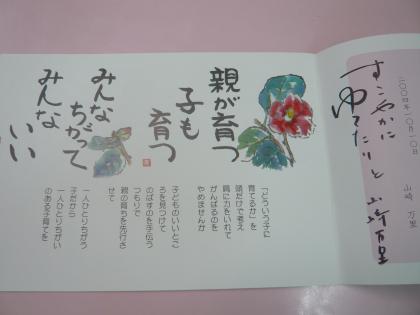 二〇〇四年一〇月一〇日
山崎 万里
すこやかに
ゆったりと
山崎万里
親が育つ
子も
育つ
みんな
ちがって
みんな
いい
「どういう子に
育てるか」を
頭だけで考え
肩に力をいれて
がんばるのを
やめませんか
子どものいいとこ
ろを見つけて
のばすのを手伝う
つもりで
親の育ちを先行さ
せて
一人ひとりちがう
子だから
一人ひとりちがい
のある子育てを